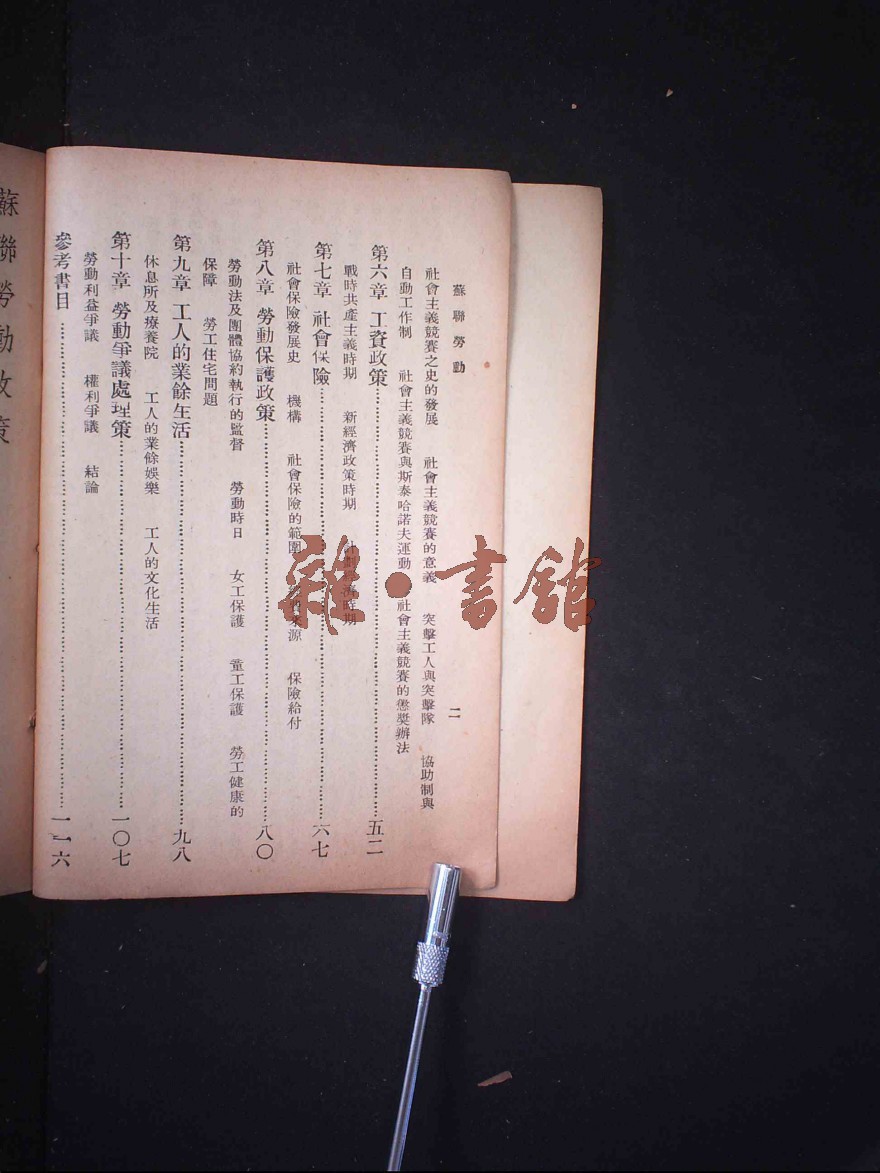 蘇聯勞動
二
社會主義競賽之史的發展 社會主義競賽的意義 突擊工人與突擊隊 協助制與
自動工作制 社會主義競賽與斯泰哈諾夫運動 社會主義競賽的懲獎辦法
第六章 工資政策……五二
戰時共產主義時期 新經濟政策時期 計劃經濟時期
第七章 社會保險……六七
社會保險發展史 機構 社會保險的範圍 來源 保險給付
第八章 勞動保護政策……八〇
勞動法及團體協約執行的監督 勞動時日 女工保護 童工保護 勞工健康的
保障 勞工住宅問題
第九章 工人的業餘生活……九八
休息所及療養院 工人的業餘娛樂 工人的文化生活
第十章 勞動爭議處理策……一〇七
勞動利益爭議 權利爭議 結論
參考書目……一一六
蘇聯勞動政策
雜·書館